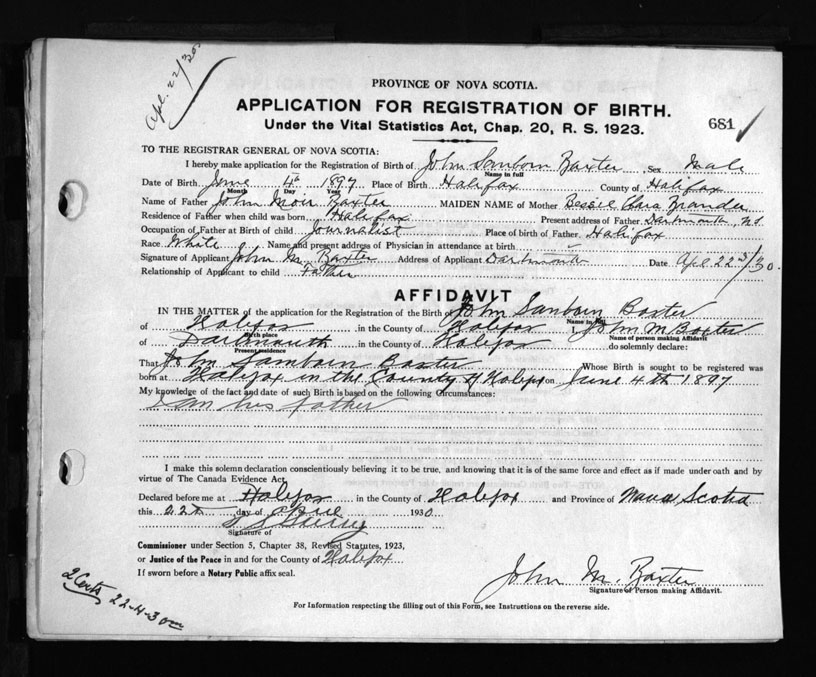 Apl. 22/30
PROVINCE OF NOVA SCOTIA.
APPLICATION FOR REGISTRATION OF BIRTH.
681
Under the Vital Statistics Act, Chap. 20, R. S. 1923.
TO THE REGISTRAR GENERAL OF NOVA SCOTIA:
I hereby make application for the Registration of Birth of John Sanborn Baxter Sex Male
Name in full
Date of Birth June 4th 1897 Place of Birth Halifax County of Halifax
Month Day Year
Name of Father John Moir Baxter MAIDEN NAME of Mother Bessie Clara
Residence of Father when child was born Halifax Present address of Father Dartmouth, NS
Occupation of Father at Birth of child Journalist Place of birth of Father Halifax
Race White Name and present address of Physician in attendance at birth
Signature of Applicant John M. Baxter Address of Applicant Dartmouth Date Apl 22nd/30.
Relationship of Applicant to child Father
AFFIDAVIT
IN THE MATTER of the application for the Registration of the Birth of John Sanborn Baxter
Name in full
of Halifax in the County of Halifax I, John M Baxter
Birth place Name of person making Affidavit
of Dartmouth in the County of Halifax do solemnly declare:
Present residence
That John Sanborn Baxter Whose Birth is sought to be registered was
born at Halifax in the County of Halifax on June 4th 1897
My knowledge of the fact and date of such Birth is based on the following Circumstances:
I am his father
I make this solemn declaration conscientiously believing it to be true, and knowing that it is of the same force and effect as if made under oath and by
virtue of The Canada Evidence Act.
Declared before me at Halifax in the County of Halifax and Province of Nova Scotia
this 22nd day of April 1930.
Signature of
Commissioner under Section 5, Chapter 38, Revised Statutes, 1923,
or Justice of the Peace in and for the County of Halifax
If sworn before a Notary Public affix seal.
John M. Baxter
Signature of Person making Affidavit.
2 Certs 22-4-30
For Information respecting the filling out of this Form, see Instructions on the reverse side.